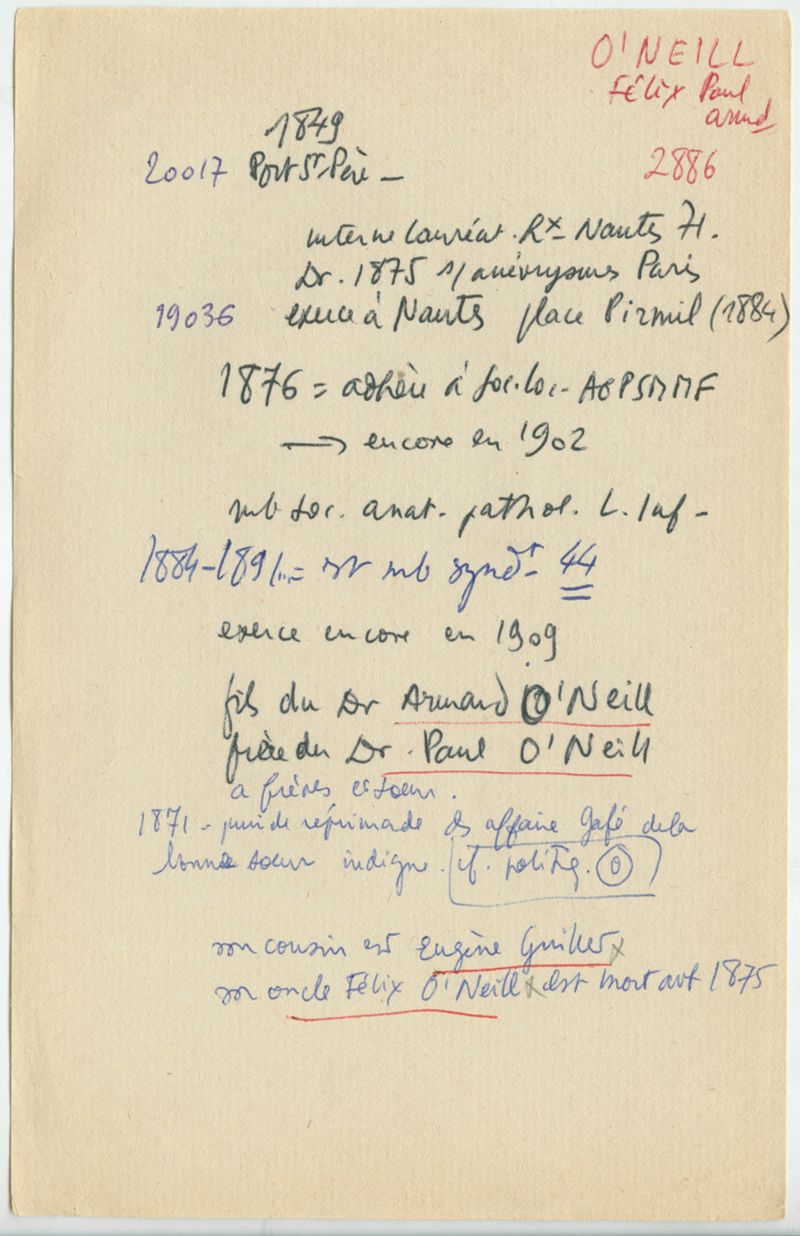 O'NEILL
Félix Paul
Armd
1849
20017 Port St Père –
2886
interne lauréat. Rx – Nantes 71.
Dr. 1875 s/anévrysmes Paris
19036 exerce à Nantes place Pirmil (1884)
1876 = adhère à Soc. loc – AGPSMMF
→ encore en 1902
mb Soc. anat. pathol. L. Inf –
1884–1891.. = est mb syndt – 44
exerce encore en 1909
fils du Dr Armand O'Neill
frère du Dr. Paul O'Neill
a frères et soeur.
1871 – puni de réprimade ds affaire Gafé de la
bonne soeur indigne. cf. politiq. O
son cousin est Eugène Guillet x
son oncle Félix O'Neill x est mort avt 1875